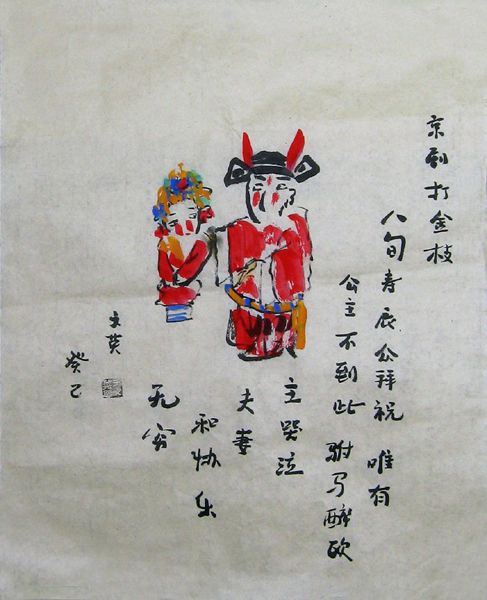 京剧打金枝
八旬寿辰公拜祝唯有
公主不到此驸马醉欧
主哭泣
夫妻
和协乐
无穷
文英
癸巳